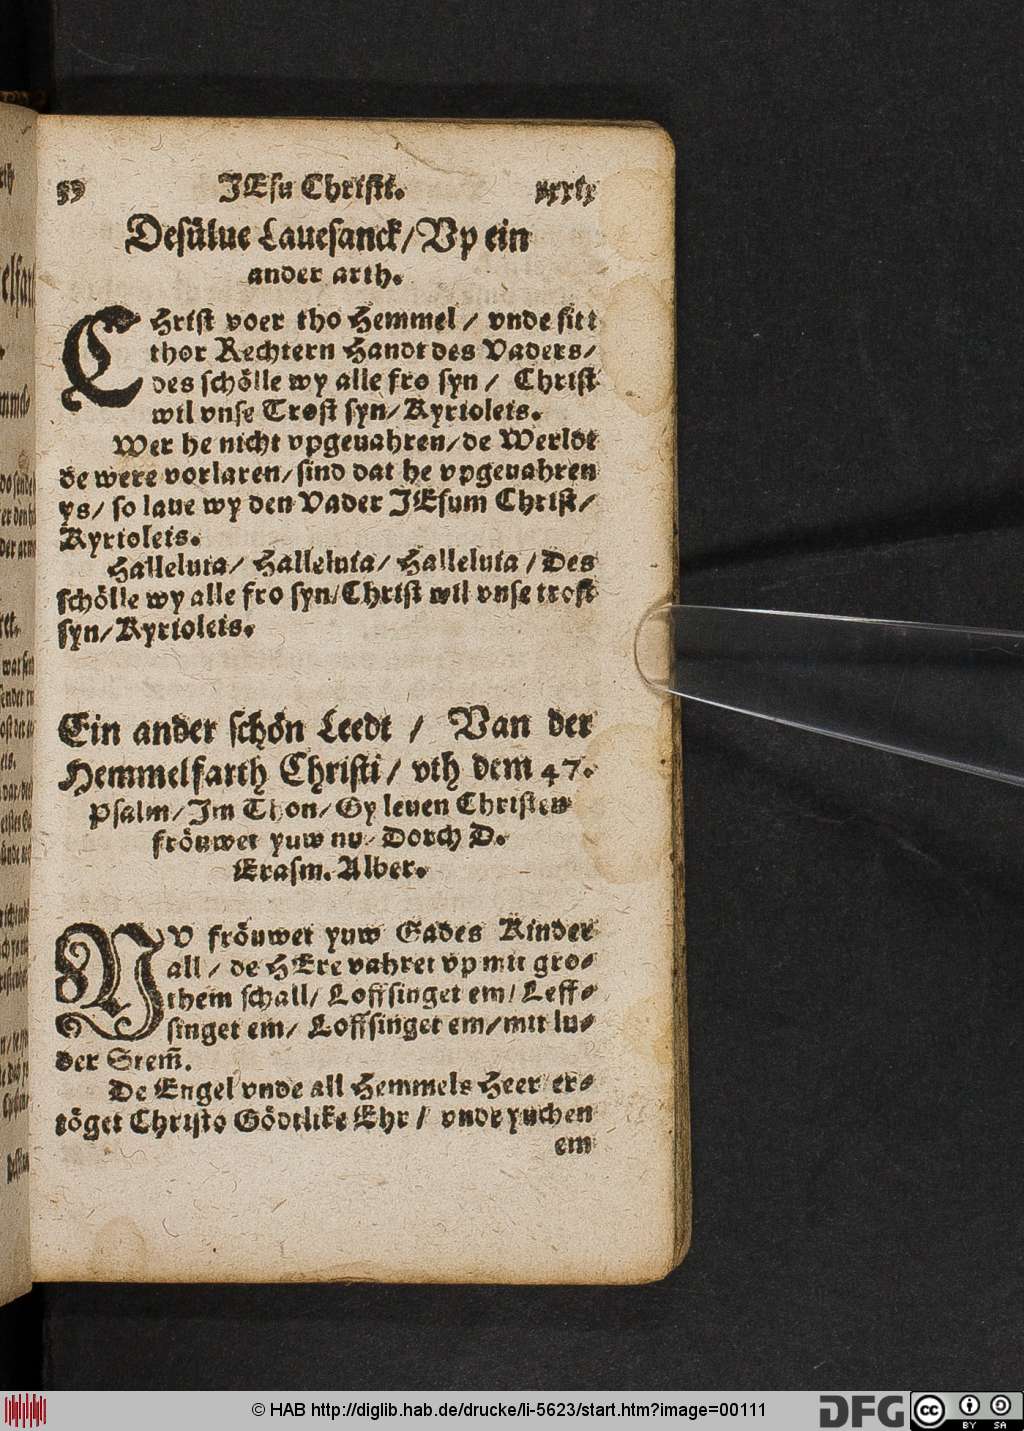 39 JEsu Christi. xxxix
Desülue Lauesanck / Vp ein
ander arth.
CHrist voer tho Hemmel / vnde sitt
thor Rechtern Handt des Vaders /
des schölle wy alle fro syn / Christ
wil vnse Trost syn / Kyrioleis.
Wer he nicht vpgeuahren / de Werldt
de were vorlaren / sind dat he vpgeuahren
ys / so laue wy den Vader JEsum Christ /
Kyrioleis.
Halleluia / Halleluia / Halleluia / Des
schölle wy alle fro syn / Christ wil vnse trost
syn / Kyrioleis.
Ein ander schön Leedt / Van der
Hemmelfarth Christi / vth dem 47.
Psalm / Im Thon / Gy leuen Christen
fröuwet yuw nu / Dorch D.
Erasm. Alber.
NV fröuwet yuw Gades Kinder
all / de HEre vahret vp mit gro-
them schall / Loffsinget em / Leff-
singet em / Loffsinget em / mit lu-
der Stem̃.
De Engel vnde all Hemmels Heer er-
töget Christo Gödtlike Ehr / vnde yuchen
em
© HAB http://diglib.hab.de/drucke/li-5623/start.htm?image=00111
DFG
cc BY SA